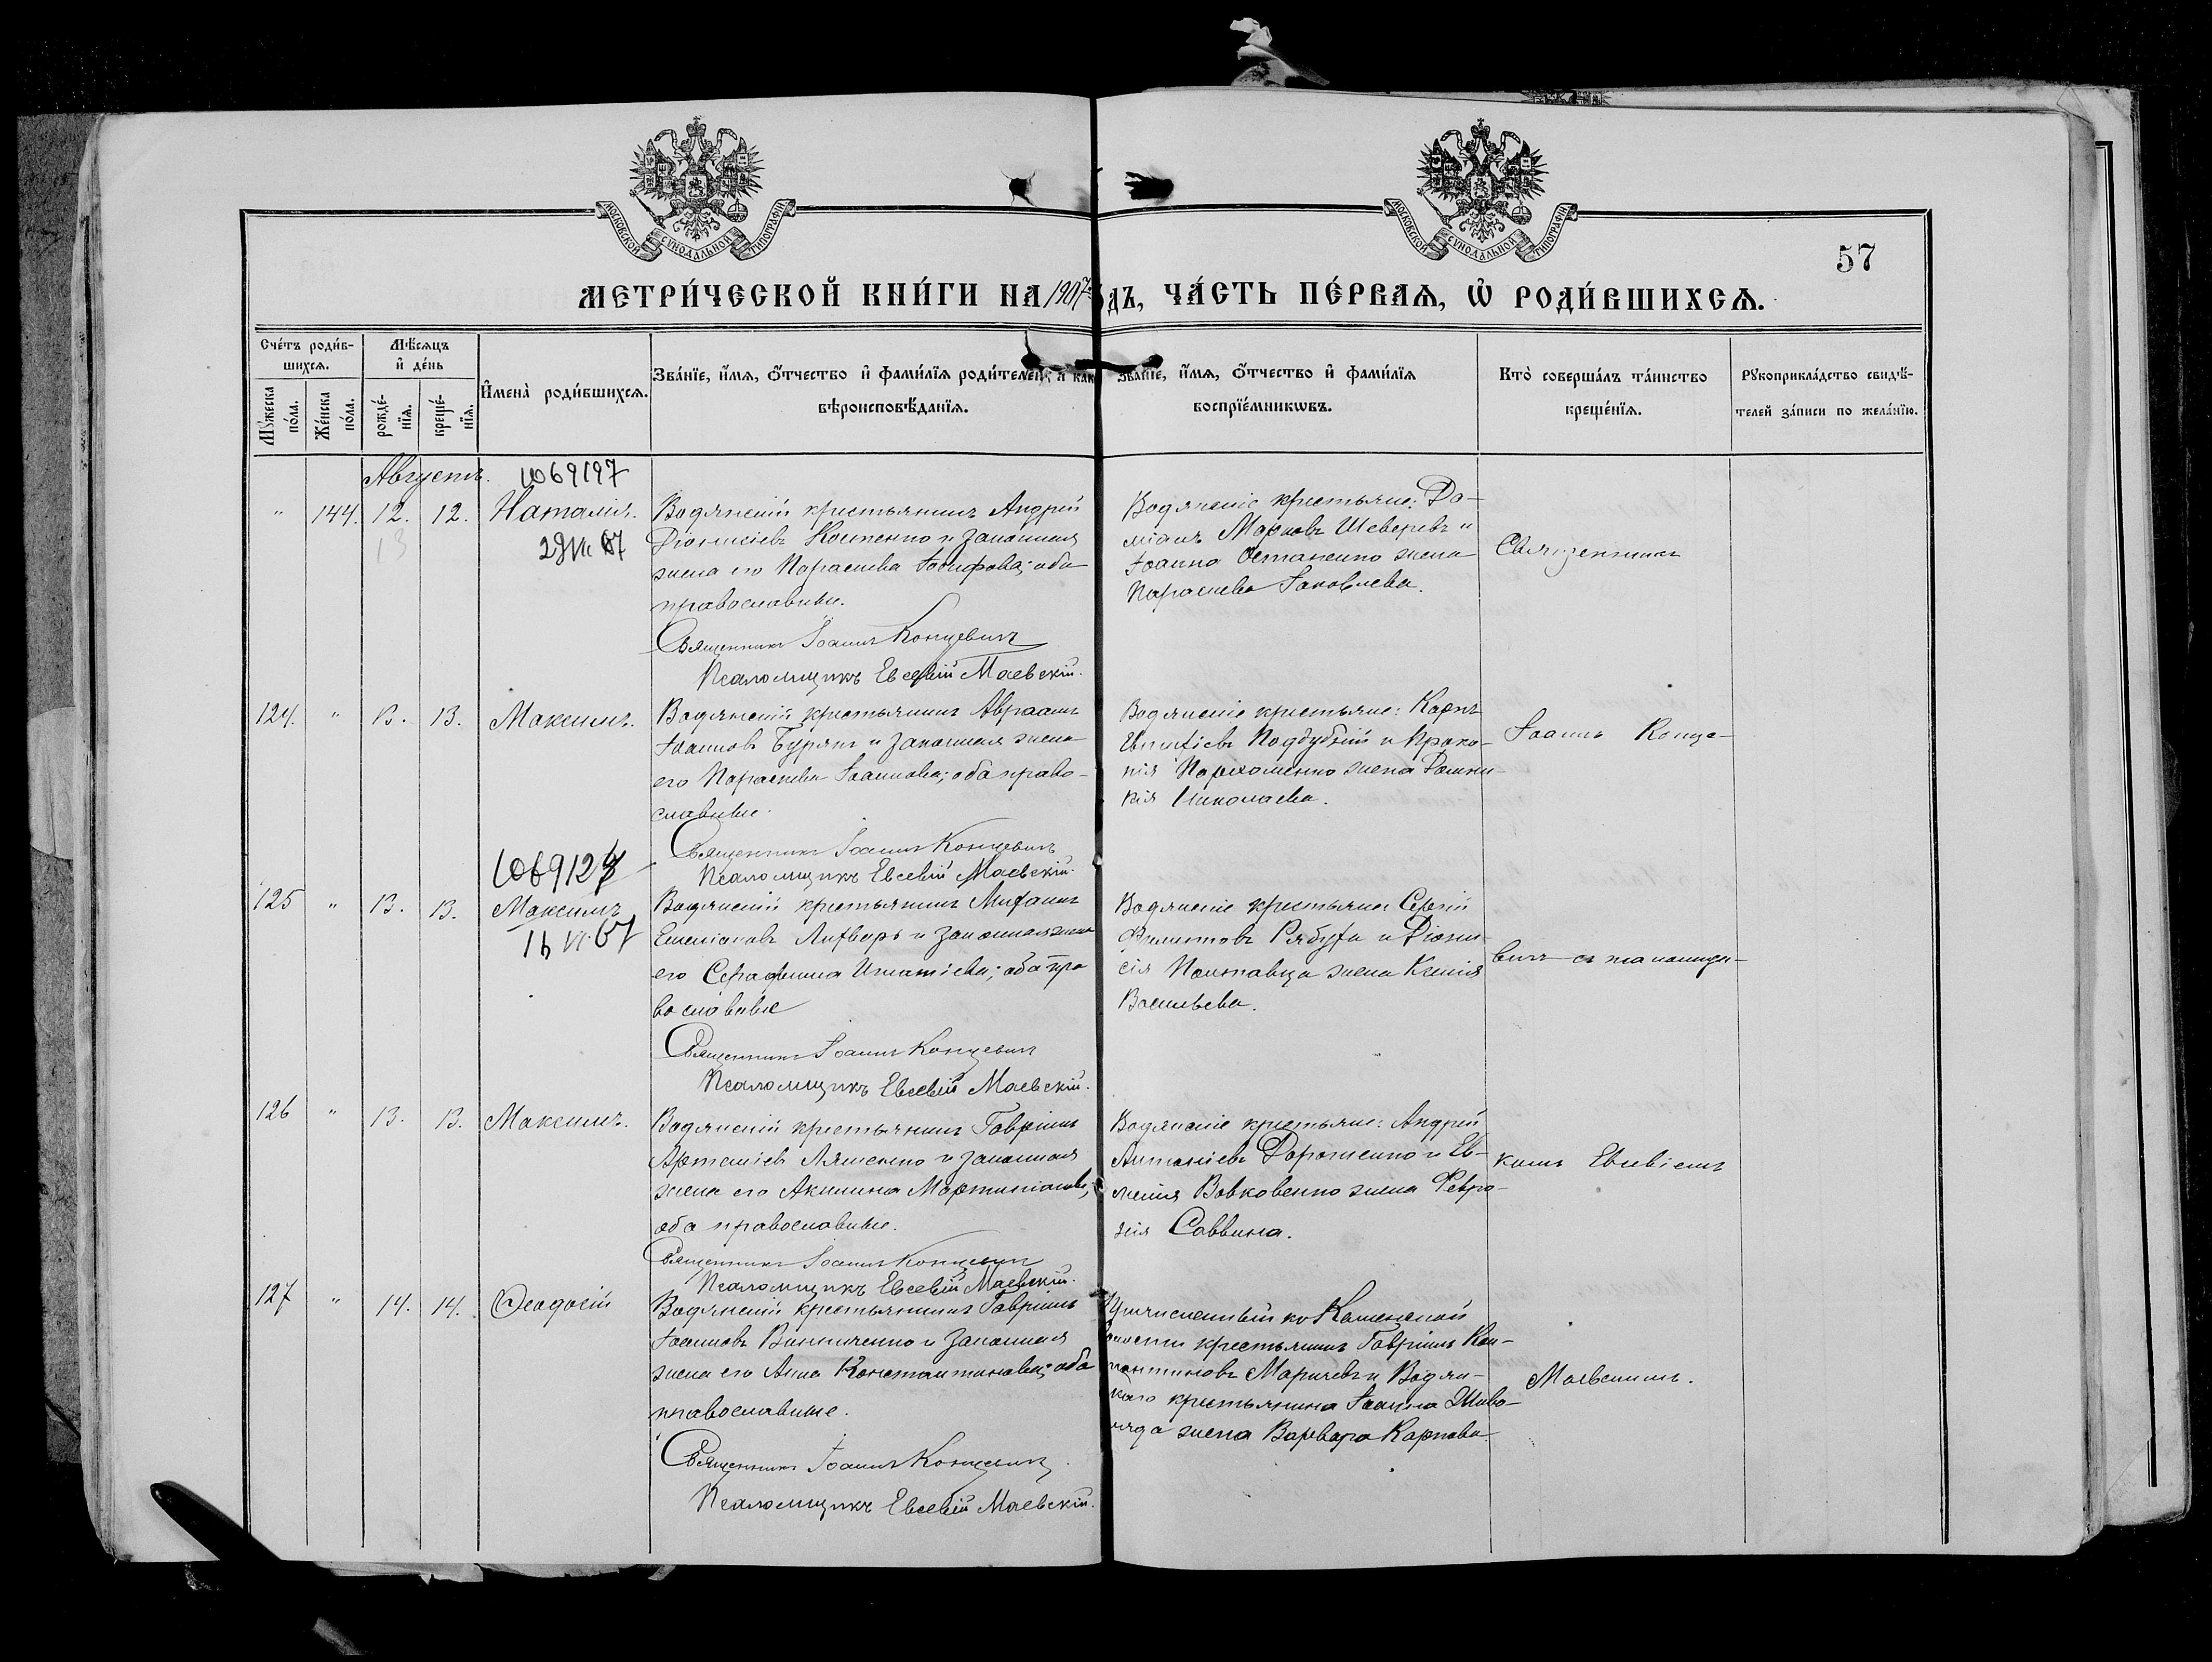 МОСКОВСКОЙ СУНОДАЛЬНОЙ ТИПОГРАФІИ
МОСКОВСКОЙ СУНОДАЛЬНОЙ ТИПОГРАФІИ
57
МЕТРИ́ЧЕСКОЙ КНИ́ГИ НА 1907 ОДЪ, ЧА́СТЬ ПЕ́РВАЯ, Ѡ РОДИ́ВШИХСЯ.
Сче́тъ роди́в-
шихся.
Му́жеска по́ла.
Же́нска по́ла.
Мѣ́сяцъ
и де́нь
рожде́-
нїя.
креще́-
нїя.
Имена̀ роди́вшихся.
Зва́нїе, и́мя, о́тчество и фами́лїя роди́телей, и как
вѣроисповѣ́данїя.
Зва́нїе, и́мя, о́тчество и фами́лїя
воспрїе́мниковъ.
Кто̀ соверша́лъ та́инство
креще́нїя.
Рукоприкла́дство свидѣ́-
телей за́писи по жела́нїю.
Августъ.
" 144. 12. 12. Наталія.
13
Водянскій крестьянинъ Андрей
Діонисіевъ Костенко и законная
жена его Параскева Іосифова; оба
православные.
Священникъ Іоаннъ Концевичъ
Псаломщикъ Евсевій Маевскій.
Водянскіе крестьяне: До-
міанъ Марковъ Шеверевъ и
Іоанна Остапенко жена
Параскева Іаковлева.
Священникъ
124. " 13. 13. Максимъ.
Водянскій крестьянинъ Авраамъ
Іоанновъ Бурякъ и законная жена
его Параскева Іоаннова; оба право-
славные.
Священникъ Іоаннъ Концевичъ
Псаломщикъ Евсевій Маевскій.
Водянскіе крестьяне: Карпъ
Поддубный и Проко-
пія Пархоменко жена
кія Николаева.
Іоаннъ Конце-
125 " 13. 13. Максимъ
Водянскій крестьянинъ
Емеліановъ Литваръ и законная жена
его Серафима Игнатіева; оба пра
вославные
Священникъ Іоаннъ Концевичъ
Псаломщикъ Евсевій Маевскій.
Водянскіе крестьяне Сергій
Филипповъ Рябуха и Діони-
сія Полтавца жена Ксенія
Васильева.
вичъ съ псаломщи-
126 " 13. 13. Максимъ.
Водянскій крестьянинъ Гавріилъ
Ляшенко и законная
жена его Акилина Мартиніанова;
оба православные.
Священникъ Іоаннъ Концевичъ
Псаломщикъ Евсевій Маевскій.
Водянскіе крестьяне: Андрей
Антоніевъ Дорошенко и Ев-
менія Вовковенко жена Февро-
нія Саввина.
комъ Евсевіемъ
127 " 14. 14. Ѳеодосій
Водянскій крестьянинъ Гавріилъ
Іоанновъ Винниченко и законная
жена его Анна Константинова; оба
православные.
Священникъ Іоаннъ Концевичъ
Псаломщикъ Евсевій Маевскій.
Причисленный къ Каменской
волости крестьянинъ Гавріилъ Кон-
стантиновъ Маричевъ и Водян-
скаго крестьянина Іоанна
жена Варвара Карпова.
Маевскимъ.